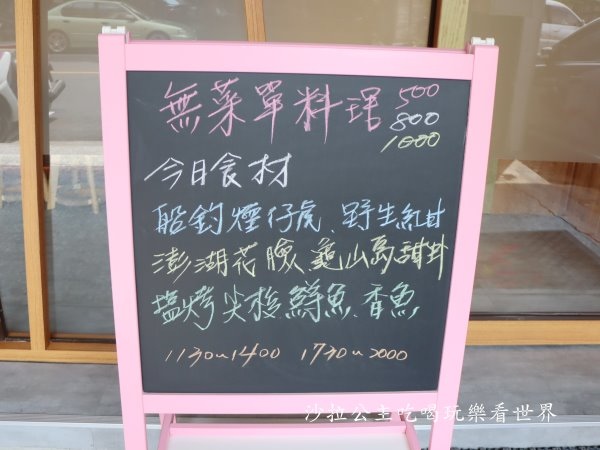 無菜單料理 500
800
1000
今日食材
船釣煙仔虎、野生紅甘
澎湖花臉、龜山島甜蝦
塩烤尖梭鱘魚、香魚
1130~1400 1730~2000
沙拉公主吃喝玩樂看世界